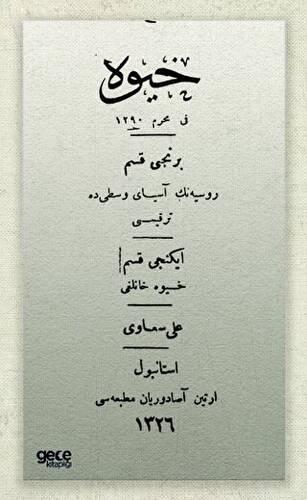 خيوه
فى محرم ١٢٩٠
برنجى قسم
روسيه‌نك آسياى وسطى‌ده
ترقيسى
ايكنجى قسم
خيوه خانلغى
على سعاوى
استانبول
ارتين آصادوريان مطبعه‌سى
١٣٢٦
gece
kitaplığı